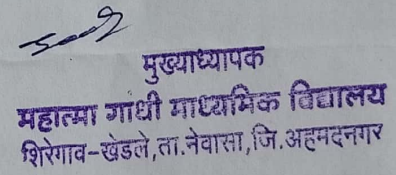 मुख्याध्यापक
महात्मा गांधी माध्यमिक विद्यालय
शिरेगाव-खेडले,ता.नेवासा,जि.अहमदनगर